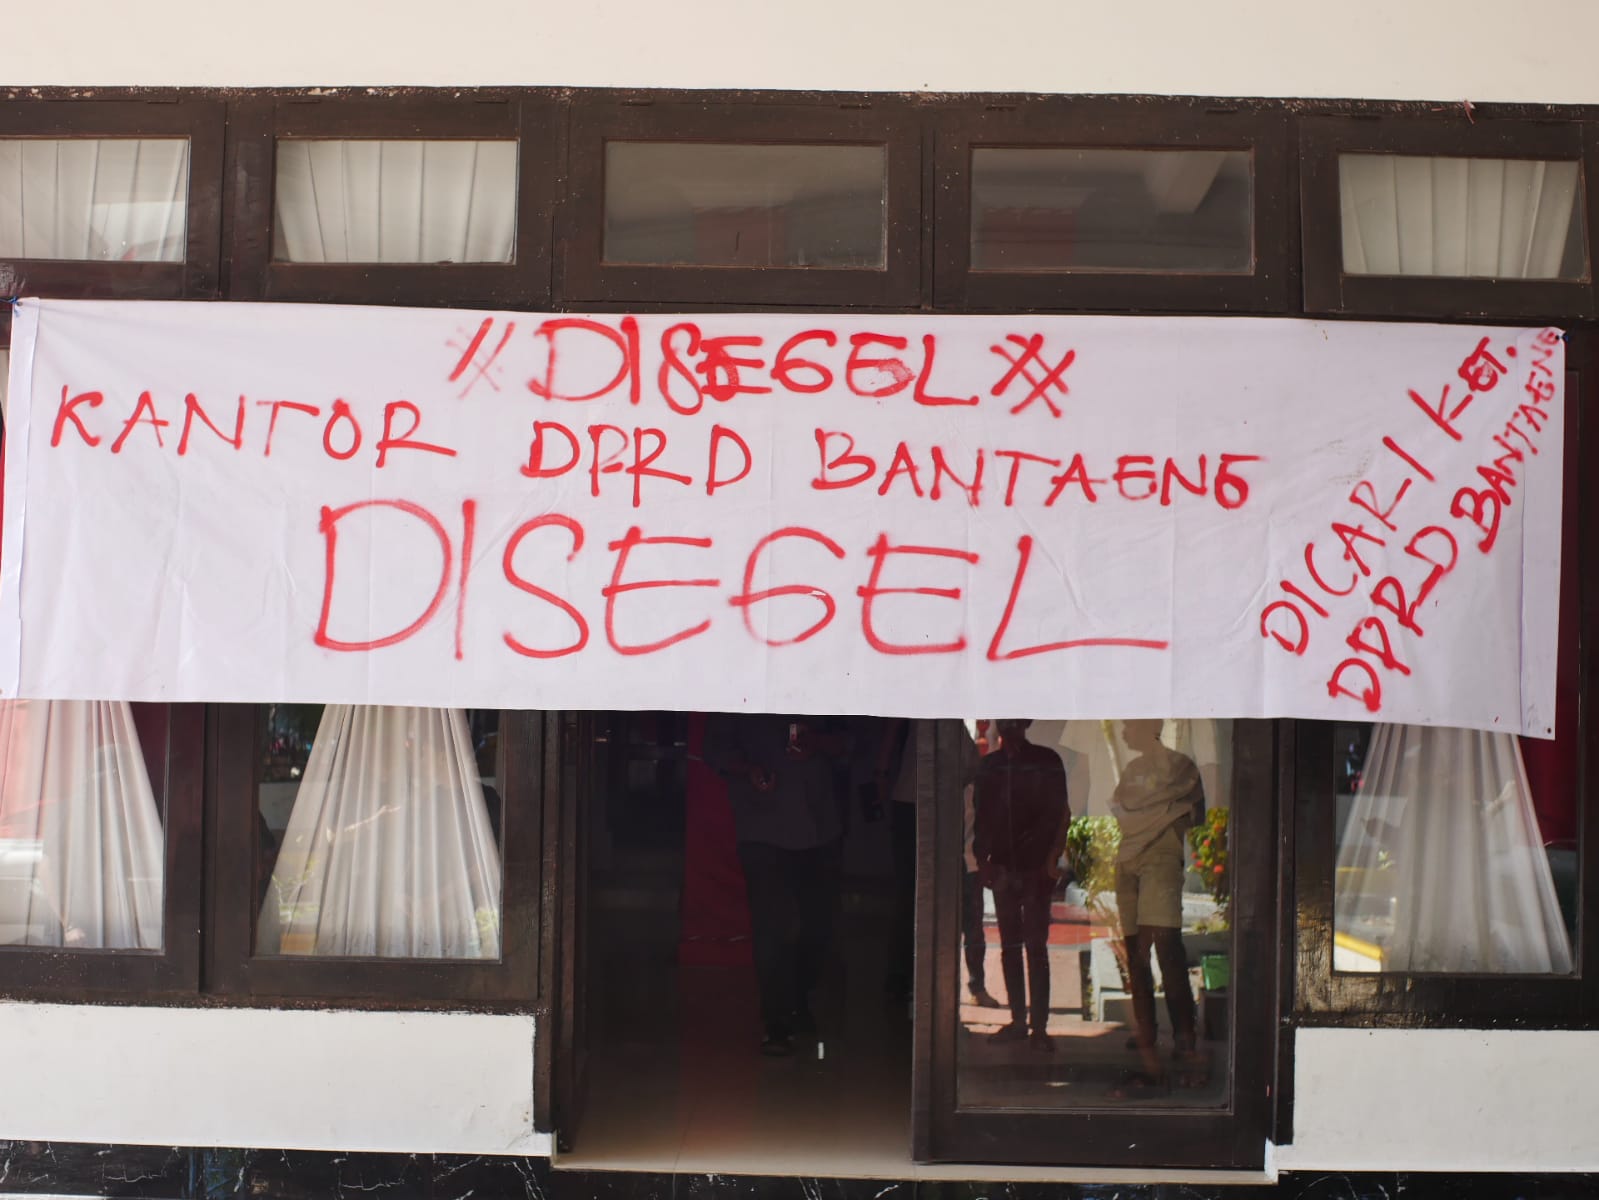 // DISEGEL XX
KANTOR DPRD BANTAENG
DISEGEL
DICARI KET.
DPRD BANTAENG